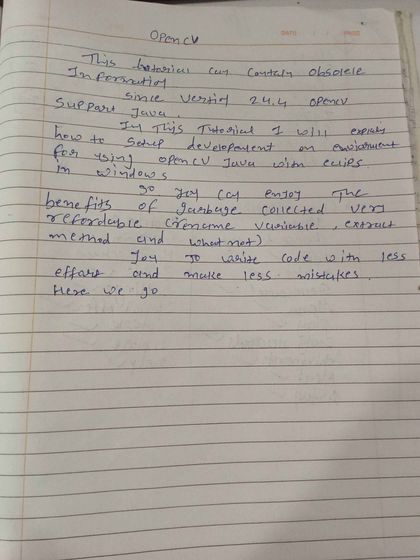 OpenCV
DATE PAGE
This tutorial can contain obsolete
Information
since version 24.4 opencv
Support Java.
In This Tutorial I will explain
how to setup development on enviorment
for using opencv Java with eclips
in windows
so you can enjoy The
benefits of garbage collected very
refordable (rename variable, extract
method and what not)
You to write code with less
effort and make less mistakes.
Here we go